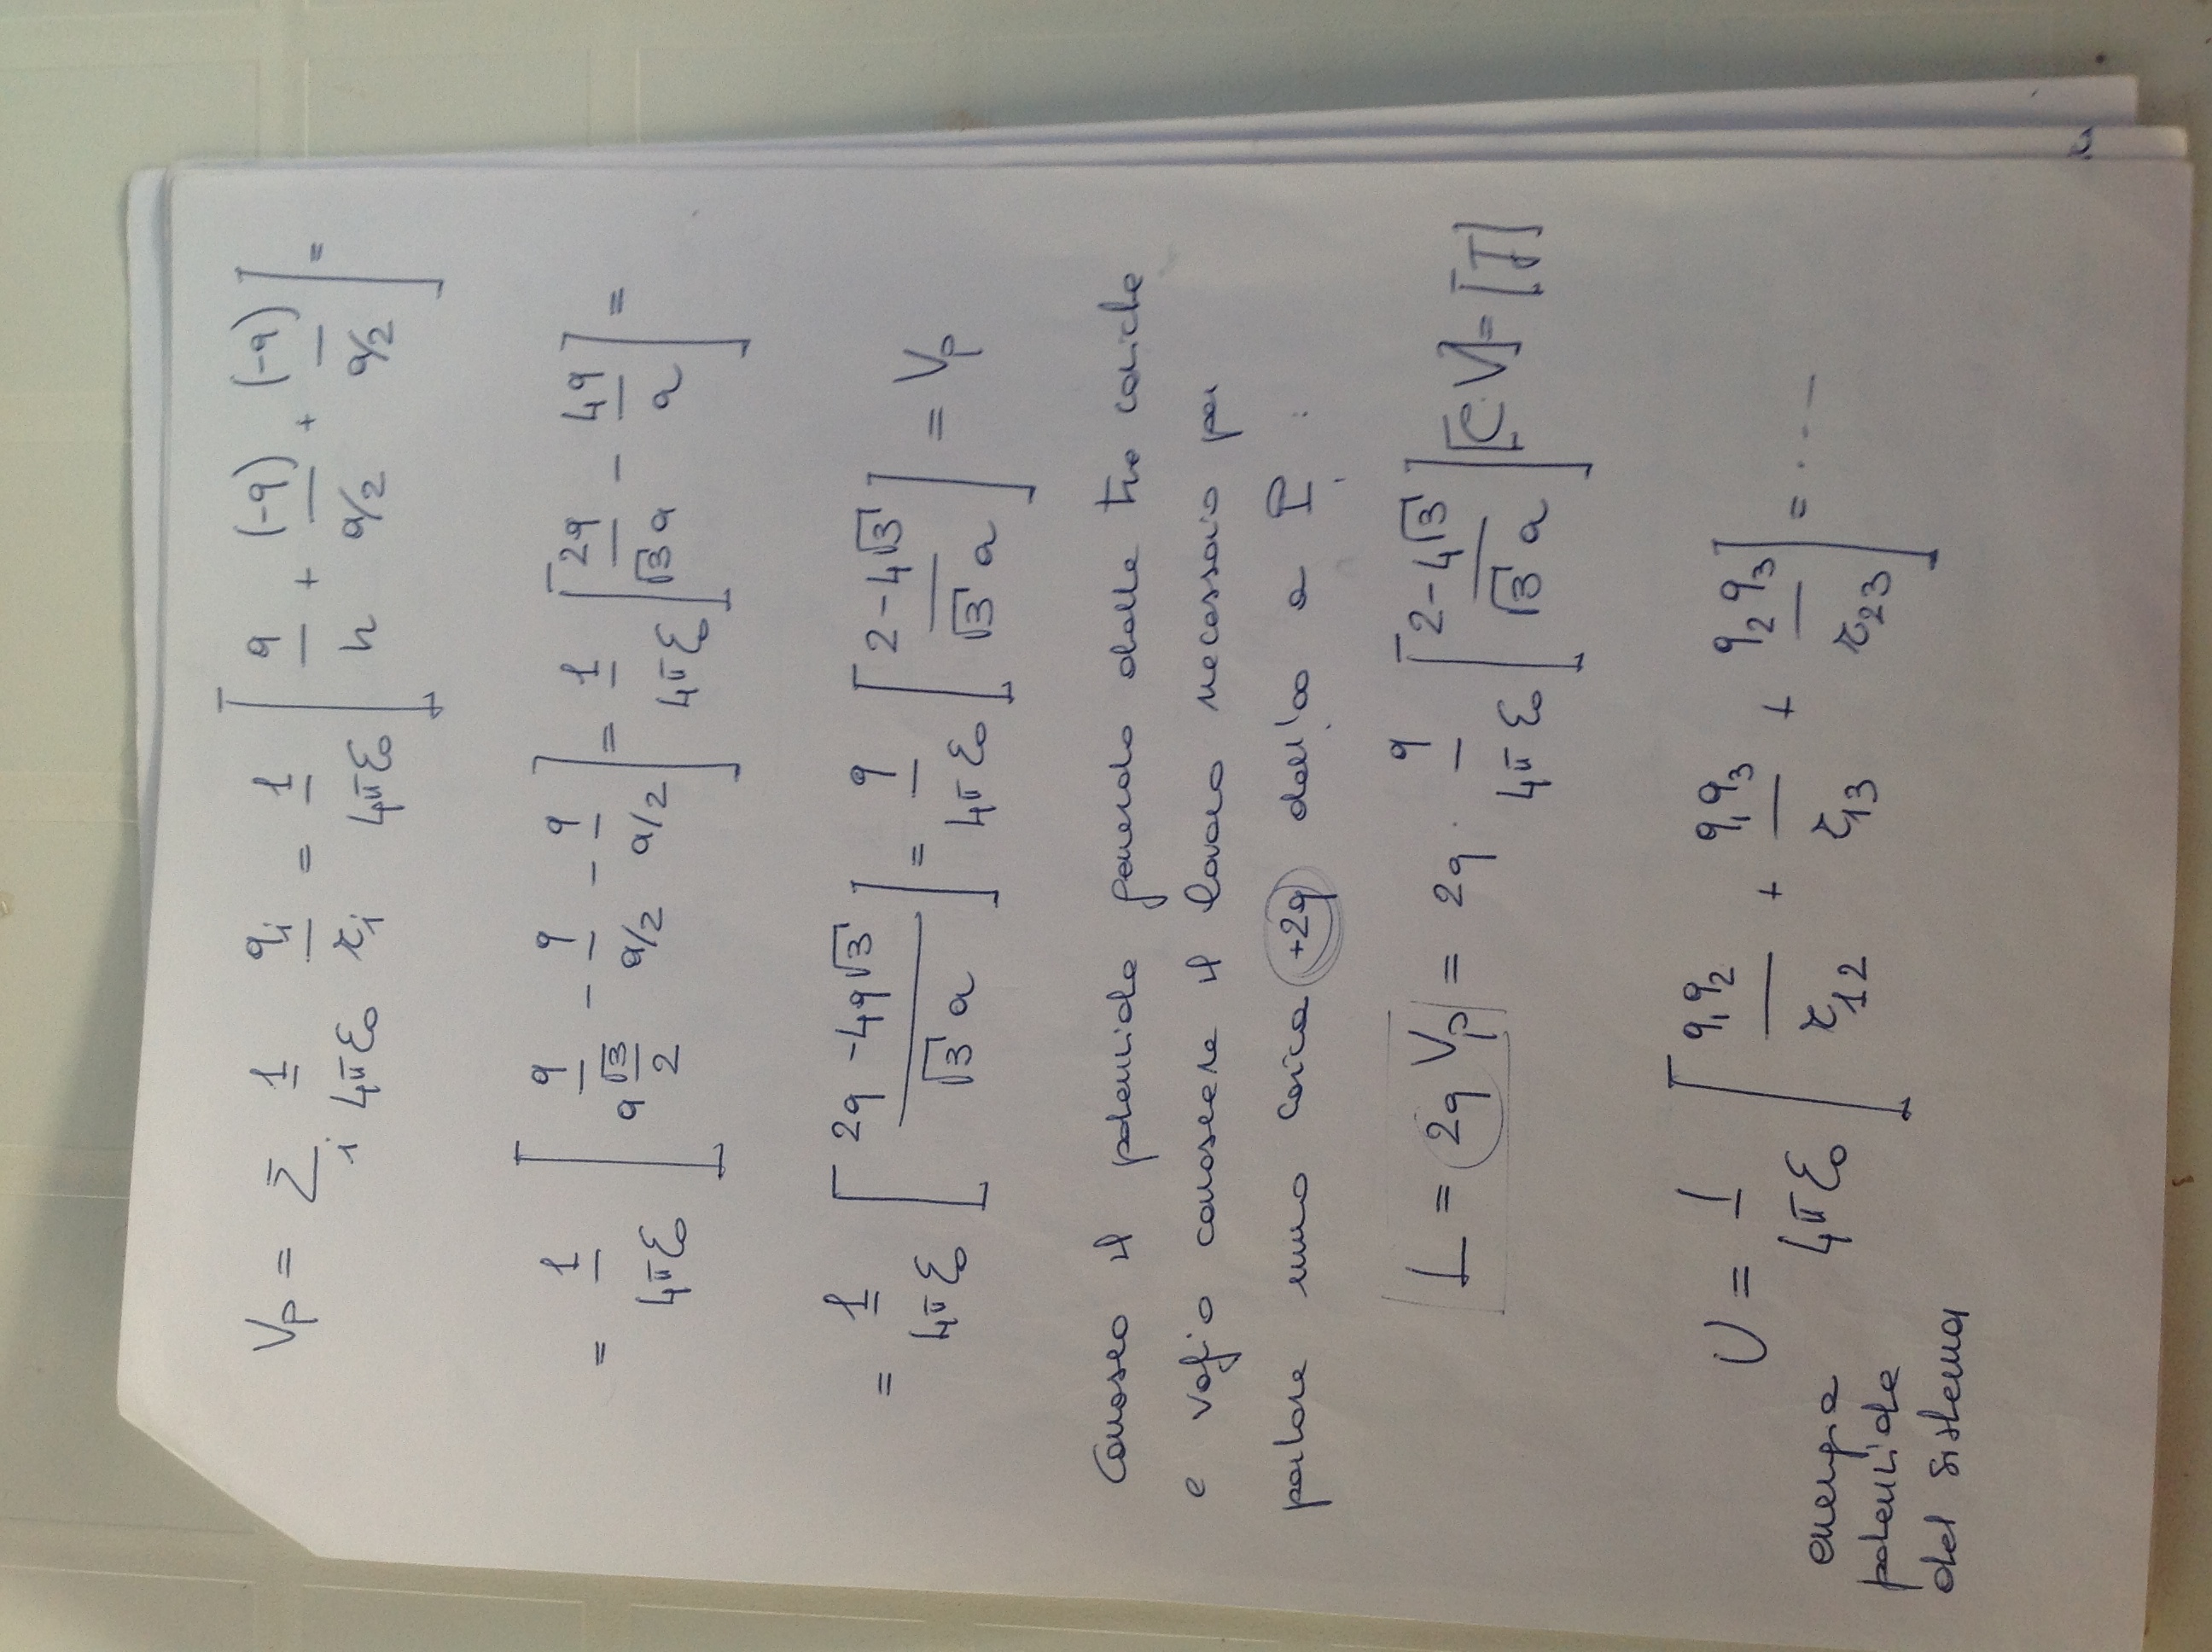 Vp = Σi 1/4πε₀ qi/ri = 1/4πε₀ [ q/h + (-q)/a/2 + (-q)/a/2 ] =
= 1/4πε₀ [ q/a√3/2 - q/a/2 - q/a/2 ] = 1/4πε₀ [ 2q/√3 a - 4q/a ] =
= 1/4πε₀ [ 2q - 4q√3 / √3 a ] = q/4πε₀ [ 2 - 4√3 / √3 a ] = Vp
Conosco il potenziale generato dalle tre cariche
e voglio conoscere il lavoro necessario per
portare una carica +2q dall'∞ a P :
L = 2q Vp = 2q · q/4πε₀ [ 2 - 4√3 / √3 a ] [C·V] = [J]
U = 1/4πε₀ [ q₁q₂/r₁₂ + q₁q₃/r₁₃ + q₂q₃/r₂₃ ] = ...
energia
potenziale
del sistema